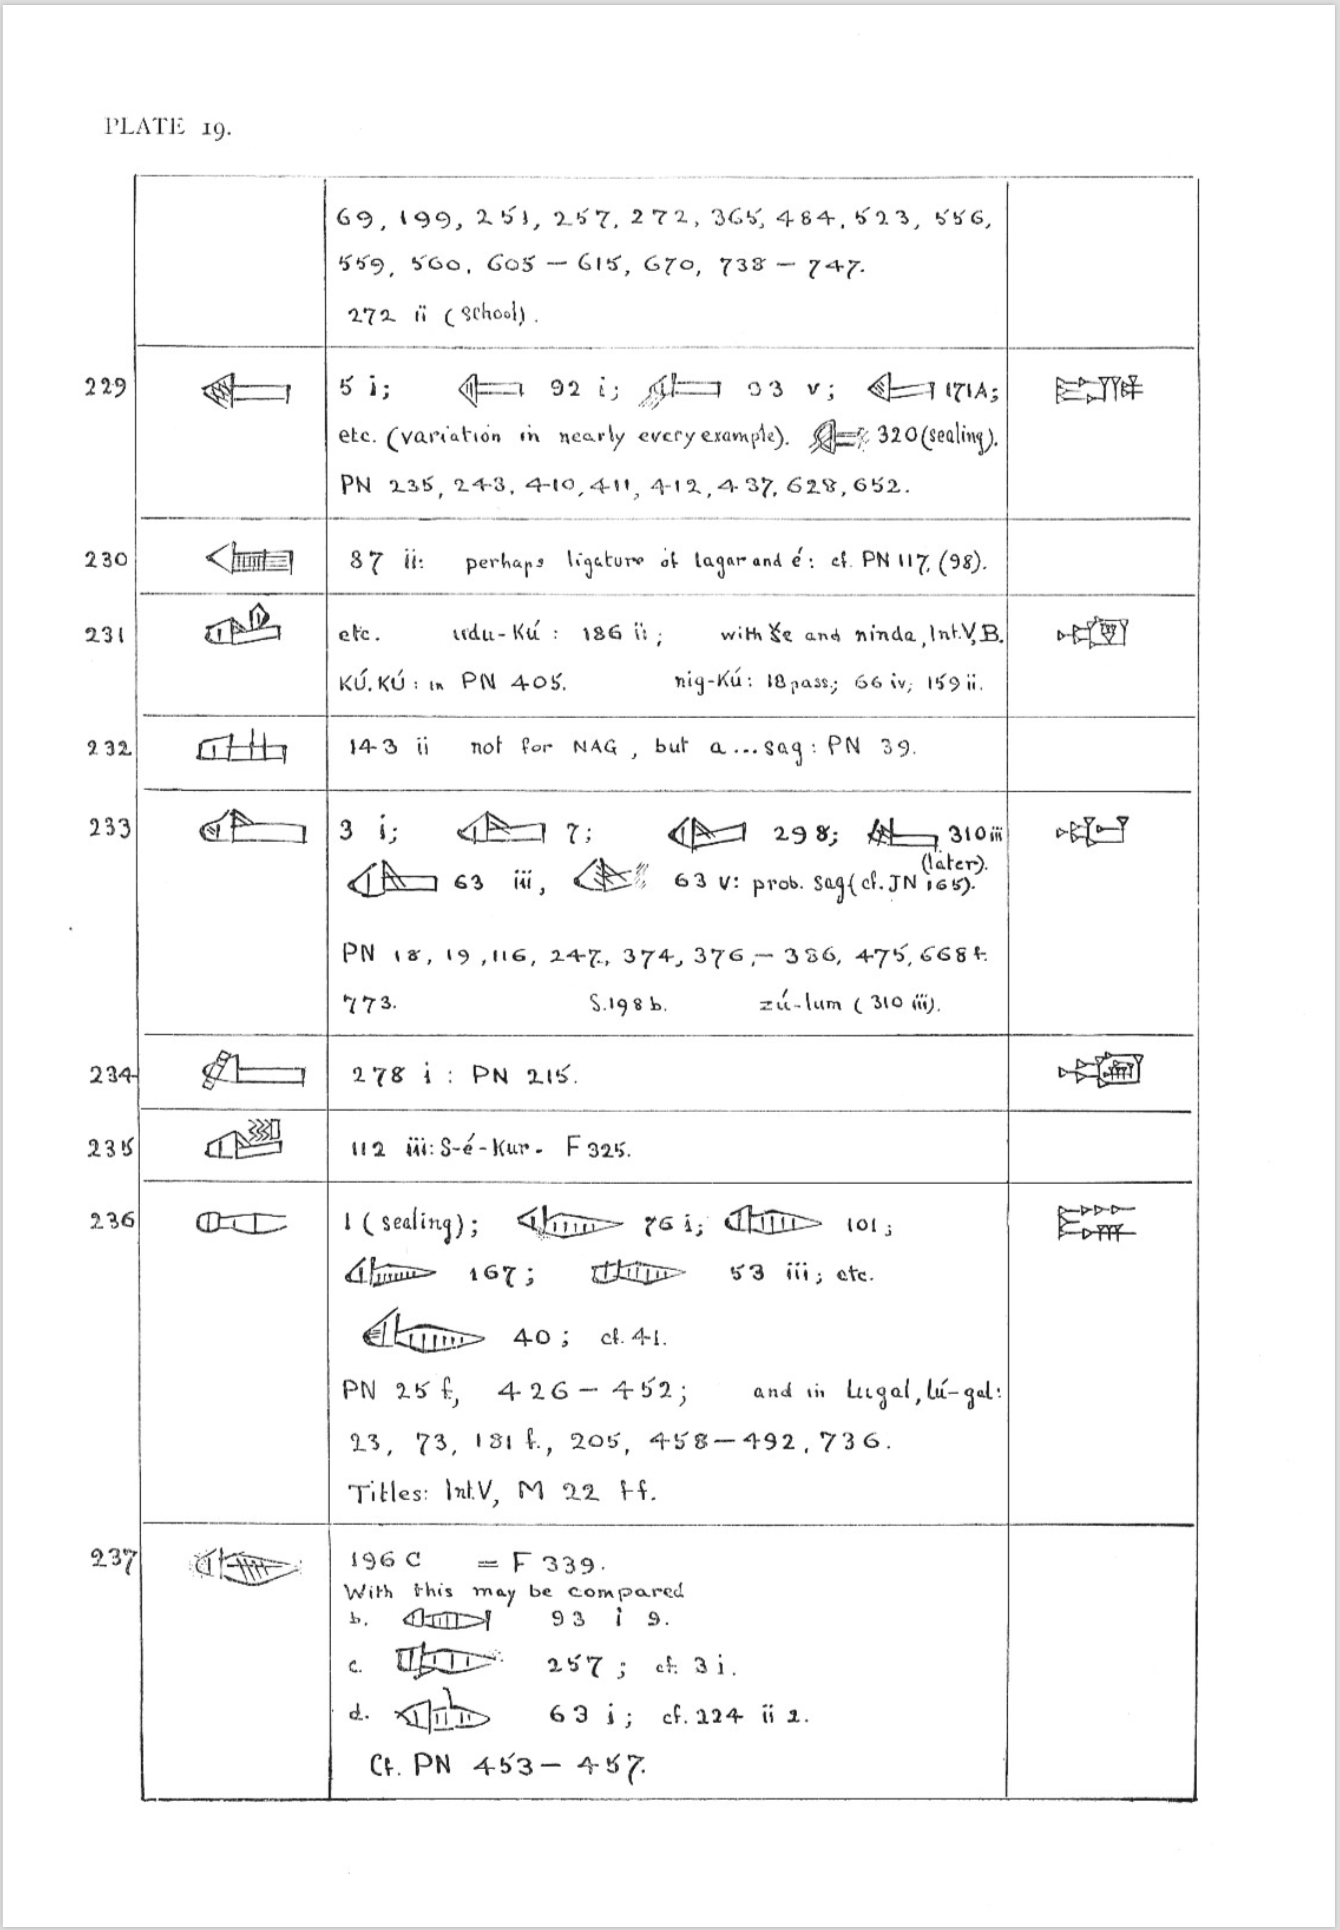 PLATE 19.
69, 199, 251, 257, 272, 365, 484, 523, 556,
559, 560, 605 – 615, 670, 738 – 747.
272 ii (school).
229 5 i; 92 i; 93 v; 171A;
etc. (variation in nearly every example). 320 (sealing).
PN 235, 243, 410, 411, 412, 437, 628, 652.
230 87 ii: perhaps ligature of lagar and é: cf. PN 117, (98).
231 etc. udu-Kú: 186 ii; with še and ninda, Int.V, B.
KÚ.KÚ: in PN 405. nig-Kú: 18 pass; 66 iv; 159 ii.
232 143 ii not for NAG, but a...sag: PN 39.
233 3 i; 7; 298; 310 iii
(later).
63 iii, 63 v: prob. sag (cf. JN 165).
PN 18, 19, 116, 247, 374, 376, – 386, 475, 668 f.
773. S.198 b. zú-lum (310 iii).
234 278 i: PN 215.
235 112 iii: S-é-Kur. F 325.
236 1 (sealing); 76 i; 101;
167; 53 iii; etc.
40; cf. 41.
PN 25 f, 426 – 452; and in Lugal, lú-gal:
23, 73, 181 f., 205, 458 – 492, 736.
Titles: Int.V, M 22 ff.
237 196 C = F 339.
With this may be compared
b. 93 i 9.
c. 257; cf. 3 i.
d. 63 i; cf. 224 ii 2.
Cf. PN 453 – 457.